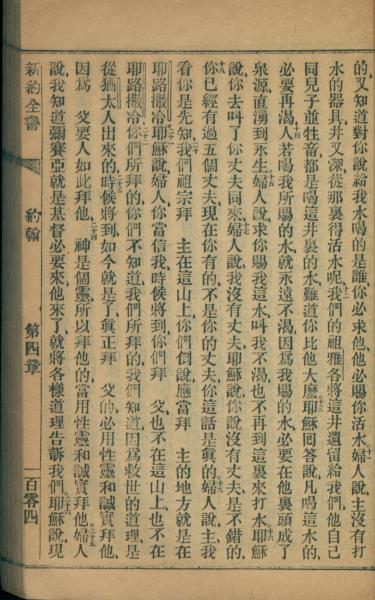 的、又知道對你說給我水喝的是誰、你必求他、他必賜你活水、十一婦人說、主沒有打
水的器具、井又深、從那裏得活水呢、十二我們的祖雅各將這井遺留給我們、他自己
同兒子並牲畜、都是喝這井裏的水、難道你比他大麽、十三耶穌回答說、凡喝這水的、
必要再渴、十四人若喝我所賜的水、就永遠不渴、因爲我賜的水、必要在他裏頭成了
泉源、直湧到永生、十五婦人說、求你賜我這水、叫我不渴、也不再到這裏來打水、十六耶穌
說、你去叫了你丈夫同來、十七婦人說、我沒有丈夫、耶穌說、你說沒有丈夫、是不錯的、
十八你已經有過五個丈夫、現在你有的、不是你的丈夫、你這話是眞的、十九婦人說、主、我
看你是先知、二十我們祖宗拜 主在這山上、你們倒說、應當拜 主的地方、就是在
耶路撒冷、二十一耶穌說、婦人、你當信我、時候將到、你們拜 父、也不在這山上、也不在
耶路撒冷、二十二你們所拜的、你們不知道、我們所拜的、我們知道、因爲救世的道理、是
從猶太人出來的、二十三時候將到、如今就是了、眞正拜 父的、必用性靈和誠實拜他、
因爲 父要人如此拜他、二十四 神是個靈、所以拜他的、當用性靈和誠實拜他、二十五婦人
說、我知道彌賽亞、就是基督、必要來、他來了、就將各樣道理告訴我們、二十六耶穌說、現
新約全書 約翰 第四章 一百零四